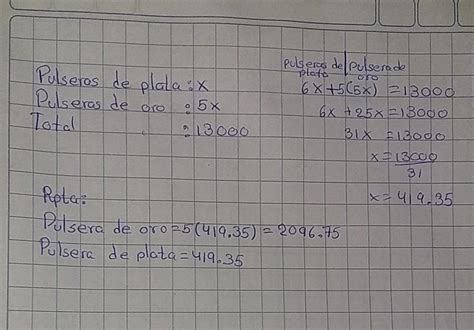 Pulseros de plata: x
Pulseras de oro : 5x
Total : 13000
pulseras de plata | pulsera de oro
6x + 5(5x) = 13000
6x + 25x = 13000
31x = 13000
x = 13000/31
x = 419.35
Rpta:
Pulsera de oro = 5(419.35) = 2096.75
Pulsera de plata = 419.35